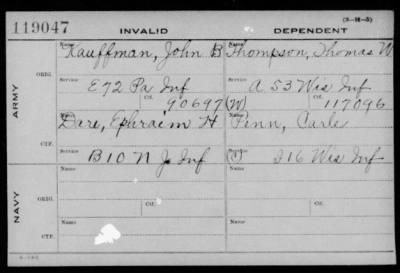 (3-H-5)
119047 INVALID DEPENDENT
Name Kauffman, John B Name Thompson, Thomas W
ARMY
ORIG.
Service E 72 Pa Inf Service A 53 Wis Inf
Ctf. 90697 (W) Ctf. 117096
Name Dare, Ephraim H Name Finn, Carle
CTF.
Service B 10 N J Inf Service (") I 16 Wis Inf
NAVY
ORIG.
Name Name
Service Ctf. Service Ctf.
CTF.
Name Name